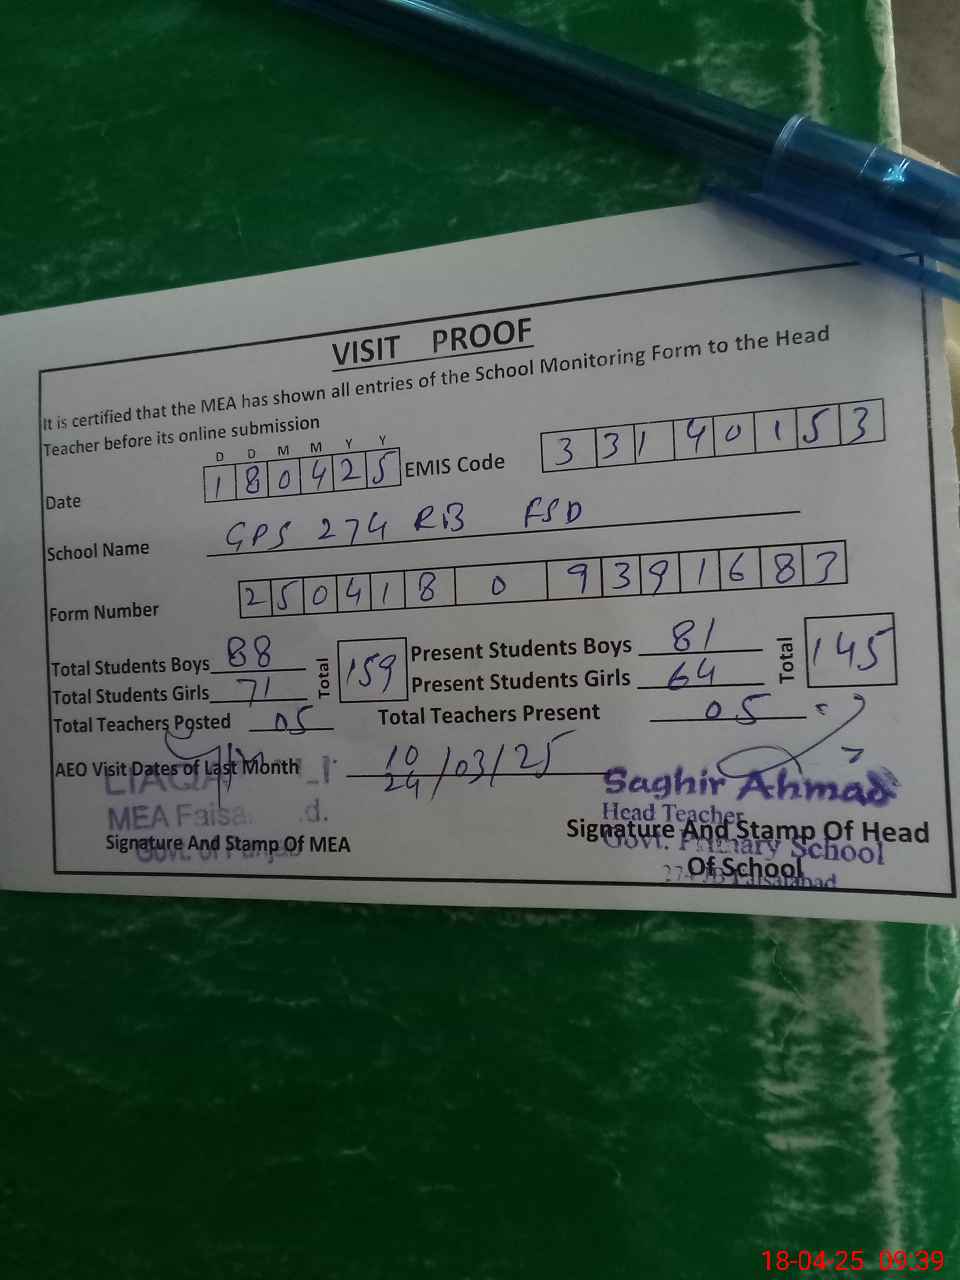 VISIT PROOF
It is certified that the MEA has shown all entries of the School Monitoring Form to the Head
Teacher before its online submission
D D M M Y Y
Date 1 8 0 4 2 5 EMIS Code 3 3 1 4 0 1 5 3
School Name GPS 274 RB FSD
Form Number 2 5 0 4 1 8 0 9 3 9 1 6 8 3
Total Students Boys 88 Total 159 Present Students Boys 81 Total 145
Total Students Girls 71 Present Students Girls 64
Total Teachers Posted 05 Total Teachers Present 05
AEO Visit Dates of Last Month 10
24/03/25
Saghir Ahmad
MEA Head Teacher
Signature And Stamp Of MEA Signature And Stamp Of Head
Govt. of Govt. Primary School
Of School
Faisalabad
18-04-25 09:39